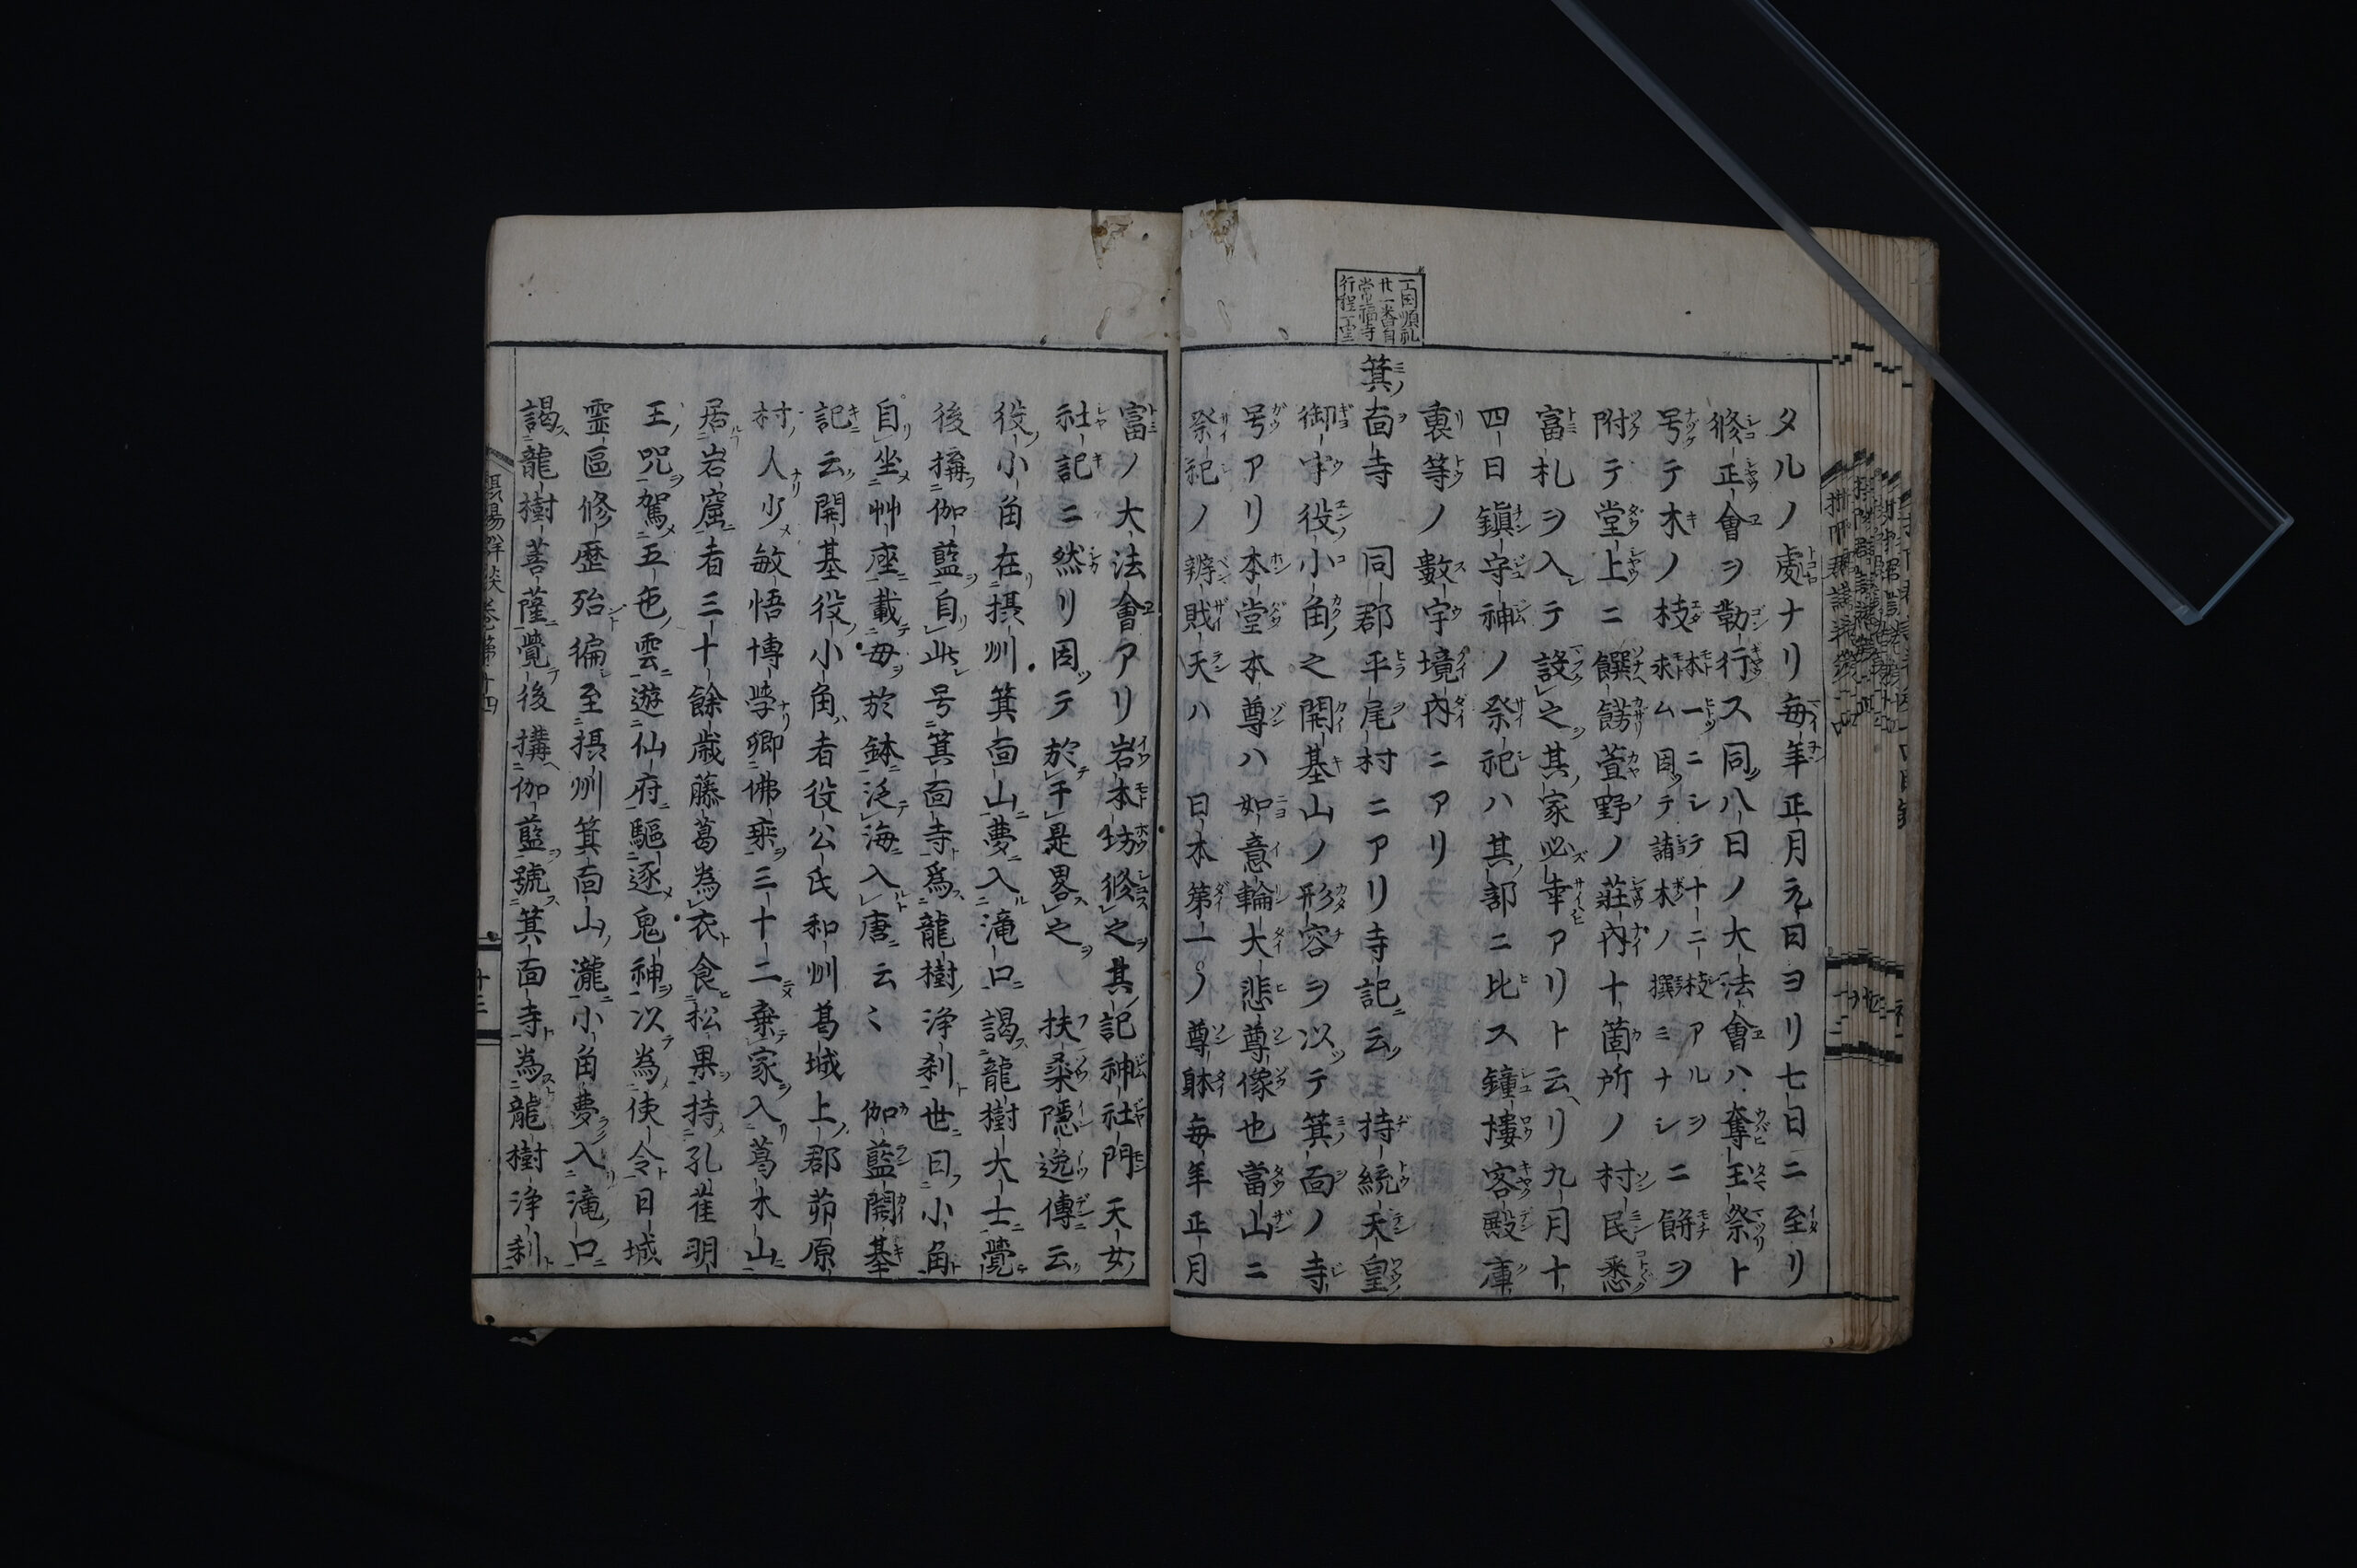 タルノ處ナリ毎年正月元日ヨリ七日ニ至リ
修正會ヲ勤行ス同八日ノ大法會ハ奪玉祭ト
号テ木ノ枝
本一ニシテ十二枝アルヲ
求ム因テ諸木ノ撰ミナシ
ニ餅ヲ
附テ堂上ニ饌餝萱野ノ莊内十箇所ノ村民悉
富札ヲ入テ設之其家必幸アリト云リ九月十
四日鎮守神ノ祭祀ハ其部ニ比ス鐘樓客殿庫
裏等ノ數宇境内ニアリ
箕面寺 同郡平尾村ニアリ寺記云 持統天皇
御宇役小角之開基山ノ形容ヲ以テ箕面ノ寺
号アリ本堂本尊ハ如意輪大悲尊像也當山ニ
祭祀ノ辨財天ハ日本第一ノ尊躰毎年正月
富ノ大法會アリ岩本坊修之其記神社門天女
社記ニ然リ因テ於于是畧之 扶桑隱逸傳云
役小角在摂州箕面山夢入滝口謁龍樹大士覺
後搆伽藍自此号箕面寺爲龍樹淨刹世曰小角
自坐艸座載毎於鉢泛海入唐云〻 伽藍開基
記云開基役小角者役公氏和州葛城上郡茆原
村人少敏悟博學卿佛乘三十二棄家入葛木山
居岩窟者三十餘歳藤葛為衣食松果持孔雀明
王咒駕五色雲遊仙府驅逐鬼神以為使令日域
靈區修歷殆徧至摂州箕面山瀧小角夢入滝口
謁龍樹菩薩覺後搆伽藍號箕面寺為龍樹浄刹